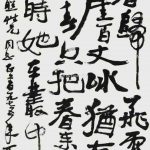 春歸飛雪
崖百丈冰猶有
春只把春来
時她在叢中